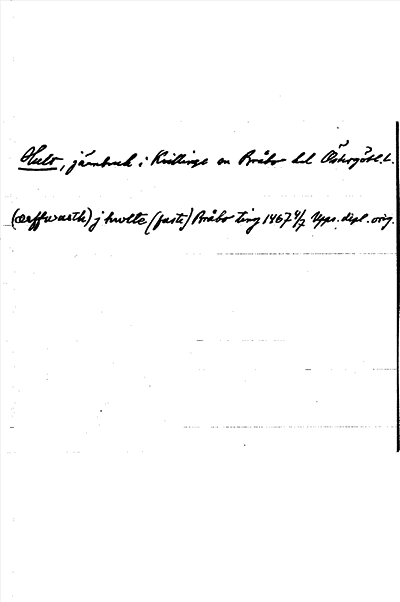 Hult, järnbruk i Kvillinge sn Bråbo hd Östergötl. l.
(ærffwasth) j hwlte (fasti) Bråbo ting 1467 4/7 Upps. dipl. orig.